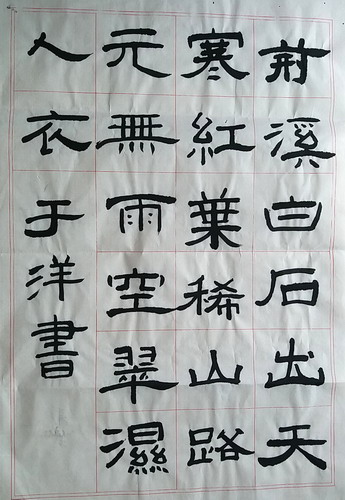 荊溪白石出天
寒紅葉稀山路
元無雨空翠濕
人衣于洋書